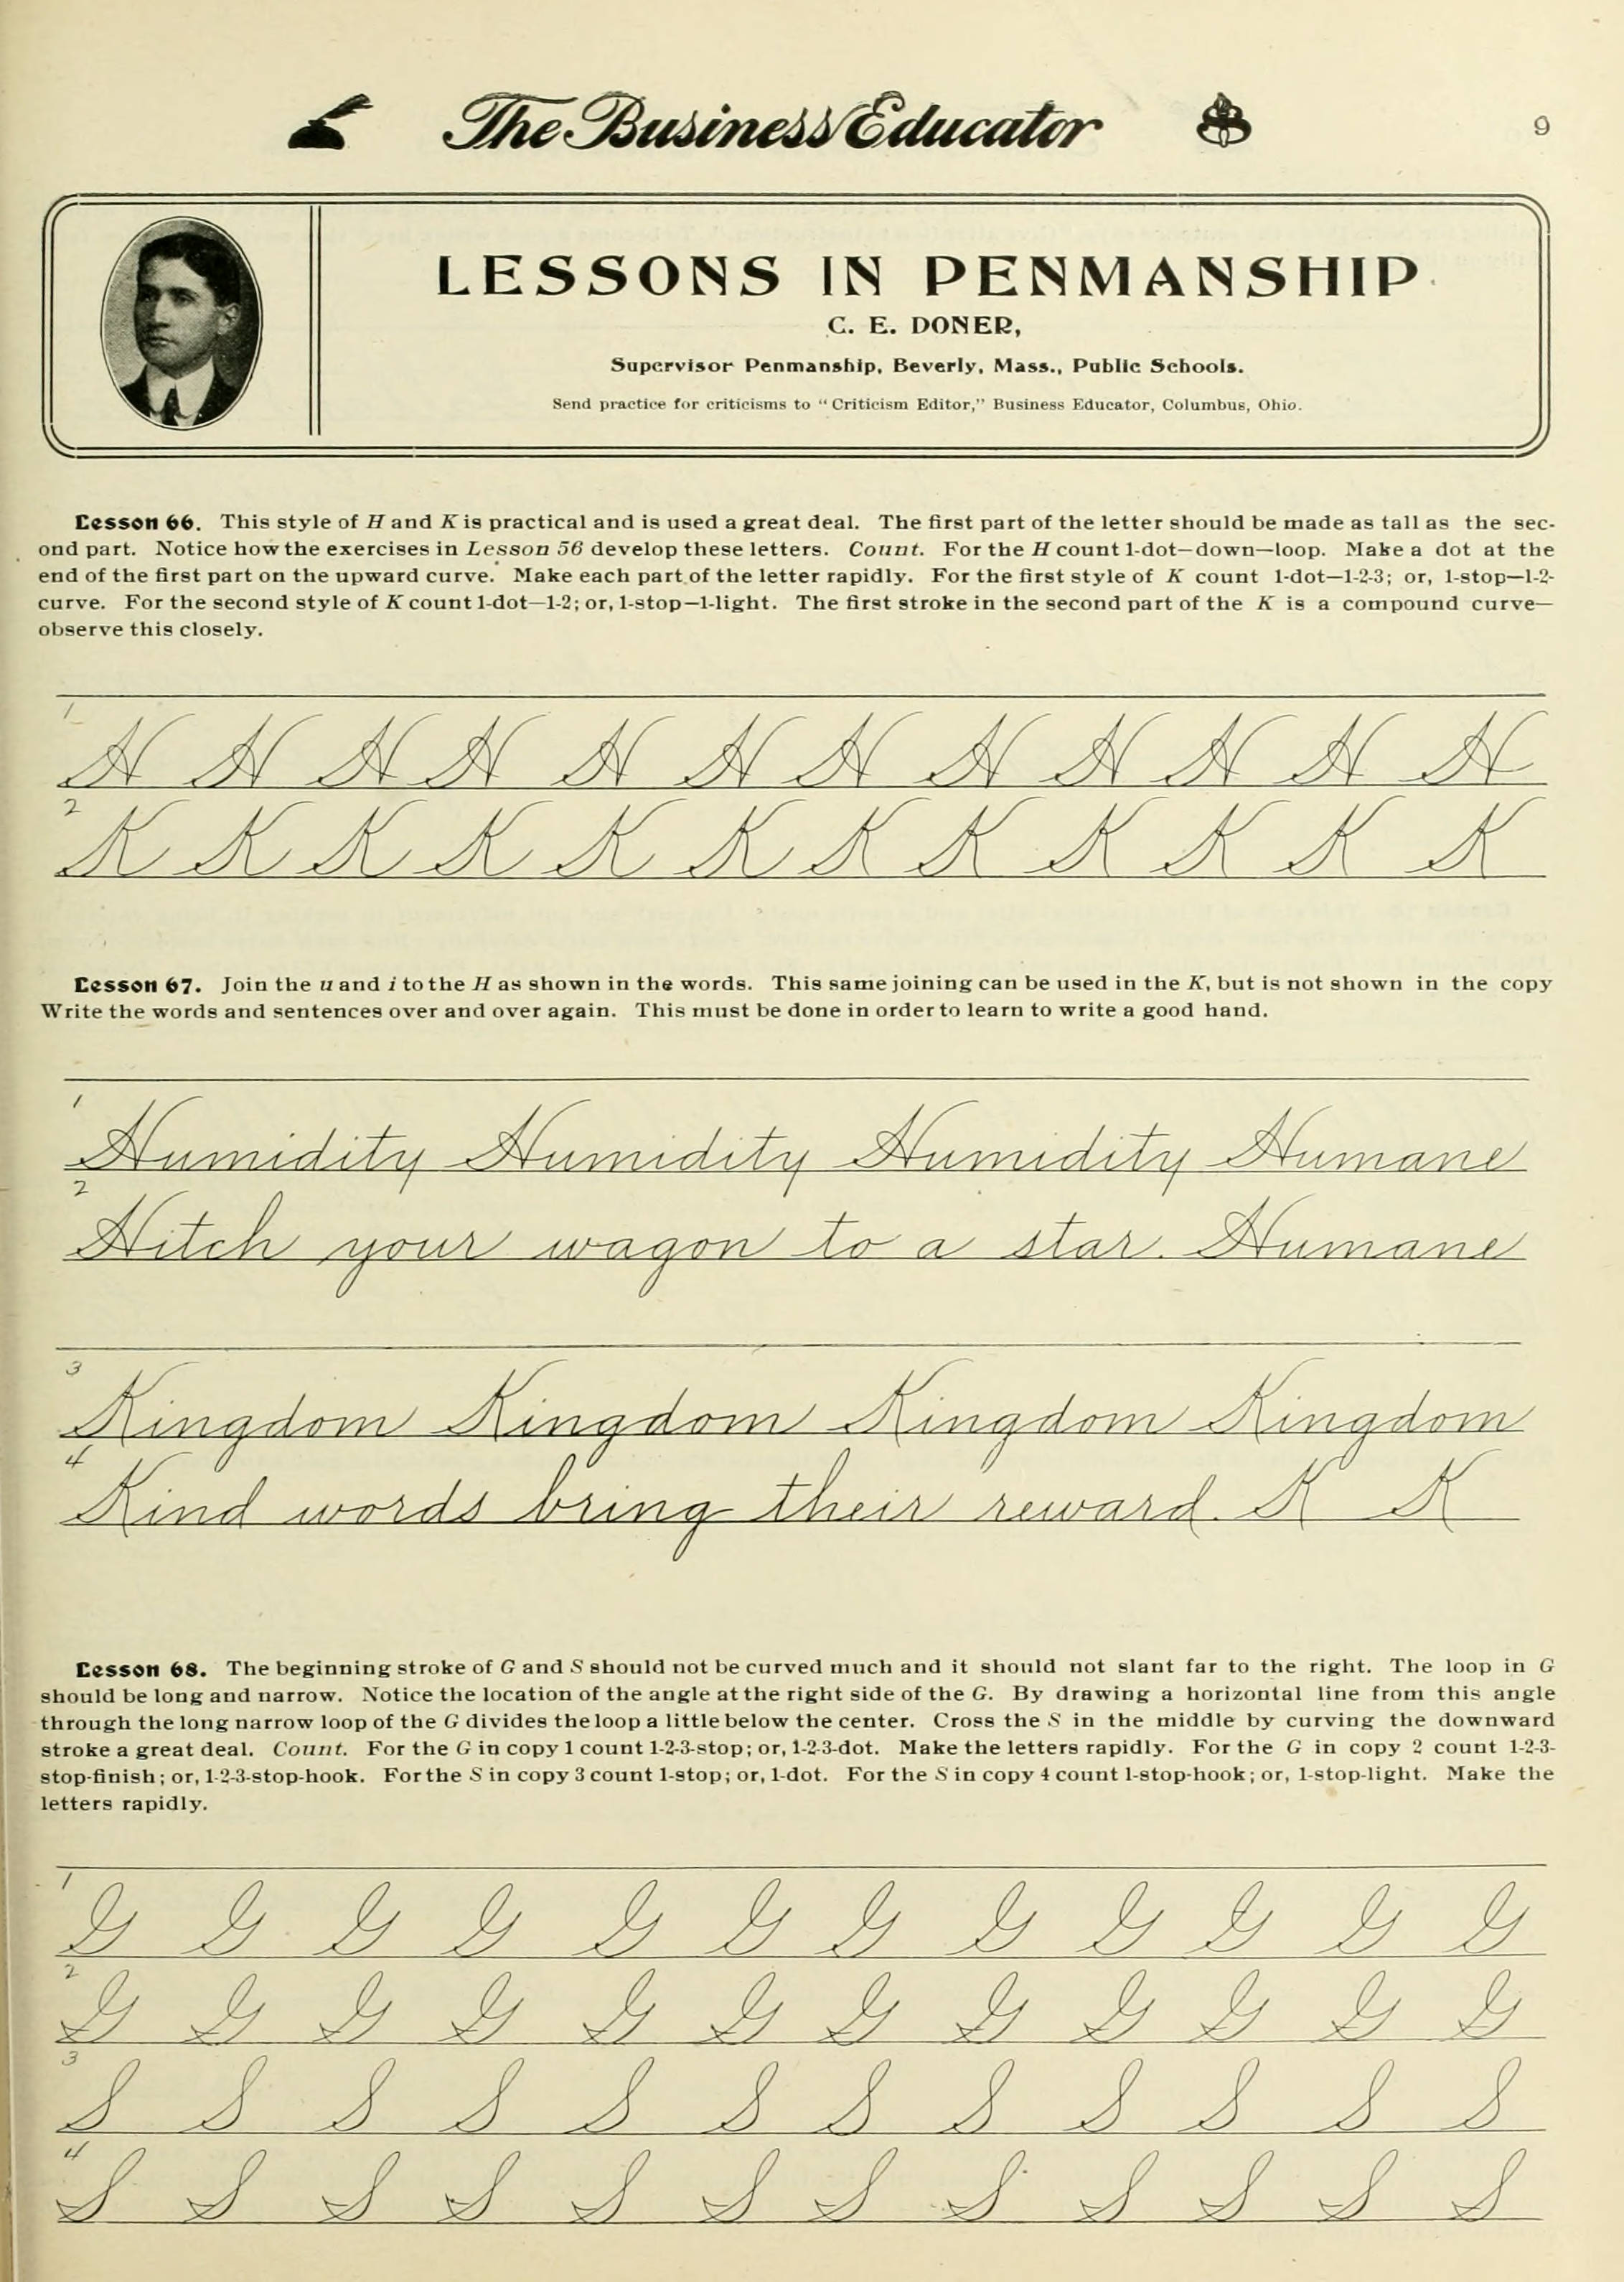 The Business Educator
9
LESSONS IN PENMANSHIP
C. E. DONER,
Supervisor Penmanship, Beverly, Mass., Public Schools.
Send practice for criticisms to "Criticism Editor," Business Educator, Columbus, Ohio.
Lesson 66. This style of H and K is practical and is used a great deal. The first part of the letter should be made as tall as the sec-
ond part. Notice how the exercises in Lesson 56 develop these letters. Count. For the H count 1-dot—down—loop. Make a dot at the
end of the first part on the upward curve. Make each part of the letter rapidly. For the first style of K count 1-dot—1-2-3; or, 1-stop—1-2-
curve. For the second style of K count 1-dot—1-2; or, 1-stop—1-light. The first stroke in the second part of the K is a compound curve—
observe this closely.
1
H H H H H H H H H H H H
2
K K K K K K K K K K K K
Lesson 67. Join the u and i to the H as shown in the words. This same joining can be used in the K, but is not shown in the copy
Write the words and sentences over and over again. This must be done in order to learn to write a good hand.
1
Humidity Humidity Humidity Humane
2
Hitch your wagon to a star. Humane
3
Kingdom Kingdom Kingdom Kingdom
4
Kind words bring their reward. K K
Lesson 68. The beginning stroke of G and S should not be curved much and it should not slant far to the right. The loop in G
should be long and narrow. Notice the location of the angle at the right side of the G. By drawing a horizontal line from this angle
through the long narrow loop of the G divides the loop a little below the center. Cross the S in the middle by curving the downward
stroke a great deal. Count. For the G in copy 1 count 1-2-3-stop; or, 1-2-3-dot. Make the letters rapidly. For the G in copy 2 count 1-2-3-
stop-finish; or, 1-2-3-stop-hook. For the S in copy 3 count 1-stop; or, 1-dot. For the S in copy 4 count 1-stop-hook; or, 1-stop-light. Make the
letters rapidly.
1
G G G G G G G G G G G G
2
G G G G G G G G G G G G
3
S S S S S S S S S S S S
4
S S S S S S S S S S S S